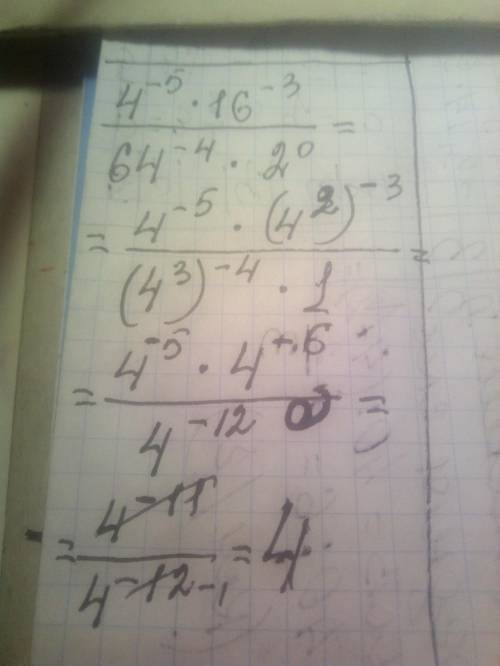 4⁻⁵ · 16⁻³ / 64⁻⁴ · 2⁰ =
= 4⁻⁵ · (4²)⁻³ / (4³)⁻⁴ · 1 =
= 4⁻⁵ · 4⁻⁶ / 4⁻¹² =
= 4⁻¹¹ / 4⁻¹² = 4